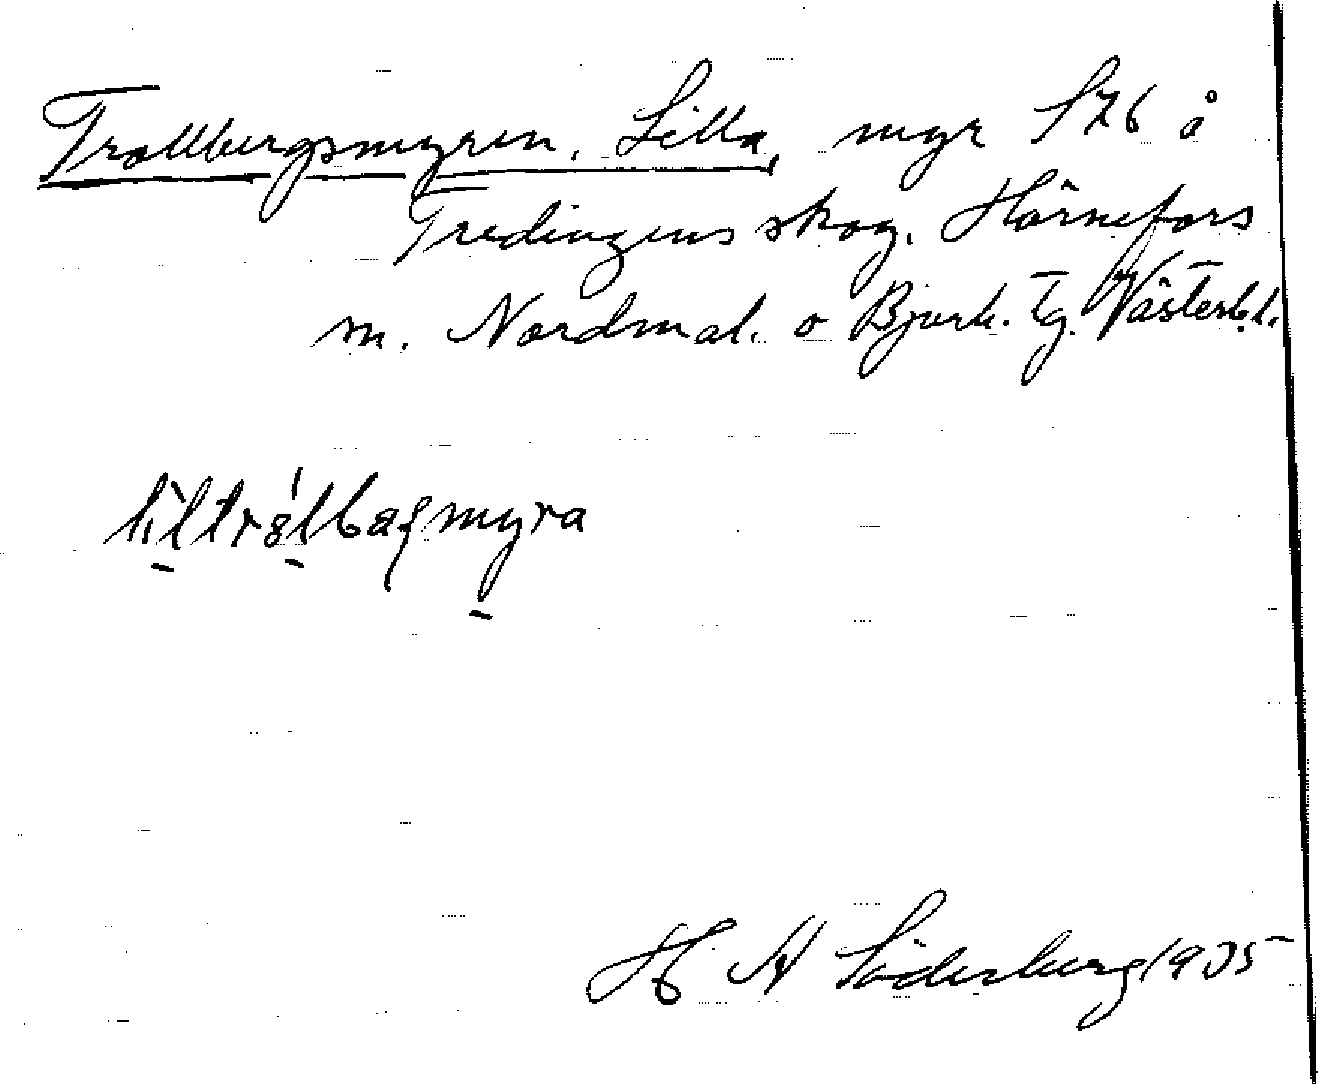 Trollbergsmyren, Lilla, myr S76 å
Tredingens skog. Hörnefors
m. Nordmal. o Bjurh. tg. Västerb.l.
H A Söderberg 1935